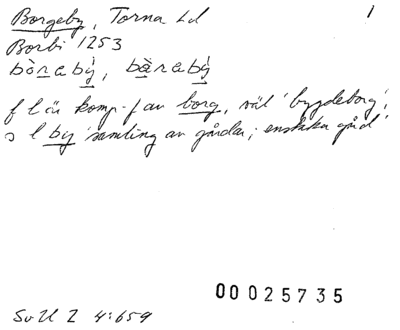 Borgeby, Torna hd 1
Borbi 1253
bòraby̆, bàraby̆
f l är komp.f av borg, väl 'bygdeborg';
s l by 'samling av gårdar; enskilda gård'
00025735
SvU Z 4:659